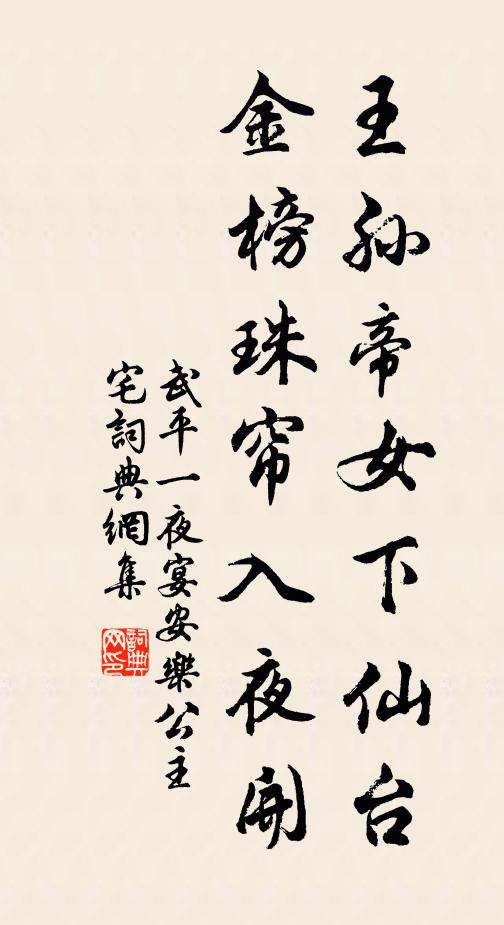 王孙帝女下仙台
金榜珠帘入夜開
武平一夜宴安樂公主
宅詞典網集
詞典网印